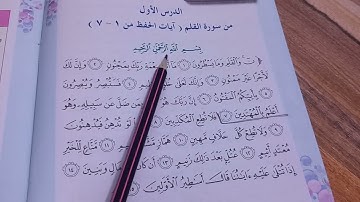 الدرس الأول
من سورة القلم ( آيات الحفظ من ١ - ٧ )
بِسْمِ اللَّهِ الرَّحْمَنِ الرَّحِيمِ
نٓ وَالْقَلَمِ وَمَا يَسْطُرُونَ ١ مَا أَنتَ بِنِعْمَةِ رَبِّكَ بِمَجْنُونٍ ٢ وَإِنَّ لَكَ
لَأَجْرًا غَيْرَ مَمْنُونٍ ٣ وَإِنَّكَ لَعَلَى خُلُقٍ عَظِيمٍ ٤ فَسَتُبْصِرُ وَيُبْصِرُونَ
بِأَييِّكُمُ الْمَفْتُونُ ٦ إِنَّ رَبَّكَ هُوَ أَعْلَمُ بِمَن ضَلَّ عَن سَبِيلِهِ وَهُوَ
أَعْلَمُ بِالْمُهْتَدِينَ ٧ فَلَا تُطِعِ الْمُكَذِّبِينَ ٨ وَدُّوا لَوْ تُدْهِنُ فَيُدْهِنُونَ
٩ وَلَا تُطِعْ كُلَّ حَلَّافٍ مَّهِينٍ ١٠ ١١ مَّنَّاعٍ لِّلْخَيْرِ
مُعْتَدٍ أَثِيمٍ ١٢ عُتُلٍّ بَعْدَ ذَلِكَ زَنِيمٍ ١٣ أَن كَانَ ذَا مَالٍ وَبَنِينَ ١٤
إِذَا تُتْلَى عَلَيْهِ ءَايَاتُنَا قَالَ أَسَاطِيرُ الْأَوَّلِينَ